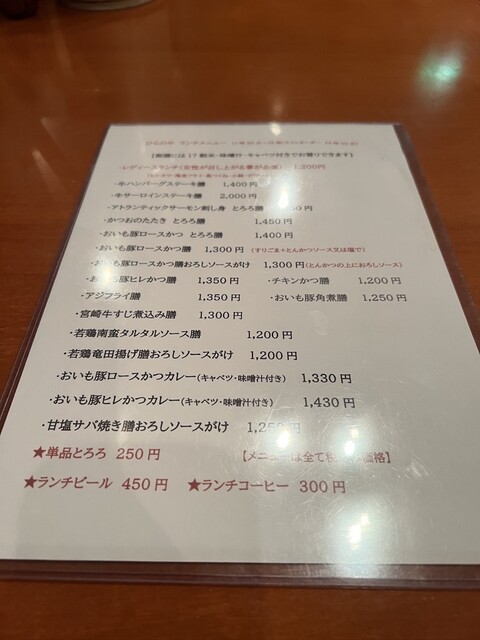 ランチメニュー
【御膳には17穀米・味噌汁・キャベツ付きでお替りできます】
・レディースランチ(女性が召し上がる量が品数) 1,200円
・牛ハンバーグステーキ膳 1,400円
・牛サーロインステーキ膳 2,000円
・アトランティックサーモン刺し身 とろろ膳
・かつおのたたき とろろ膳 1,450円
・おいも豚ロースかつ とろろ膳 1,400円
・おいも豚ロースかつ膳 1,300円 (すりごま+とんかつソース又は塩で)
・おいも豚ロースかつ膳おろしソースがけ 1,300円(とんかつの上におろしソース)
・おいも豚ヒレかつ膳 1,350円 ・チキンかつ膳 1,200円
・アジフライ膳 1,350円 ・おいも豚角煮膳 1,250円
・宮崎牛すじ煮込み膳 1,300円
・若鶏南蛮タルタルソース膳 1,200円
・若鶏竜田揚げ膳おろしソースがけ 1,200円
・おいも豚ロースかつカレー(キャベツ・味噌汁付き) 1,330円
・おいも豚ヒレかつカレー(キャベツ・味噌汁付き) 1,430円
・甘塩サバ焼き膳おろしソースがけ 1,250円
★単品とろろ 250円 【メニューは全て税込み価格】
★ランチビール 450円 ★ランチコーヒー 300円